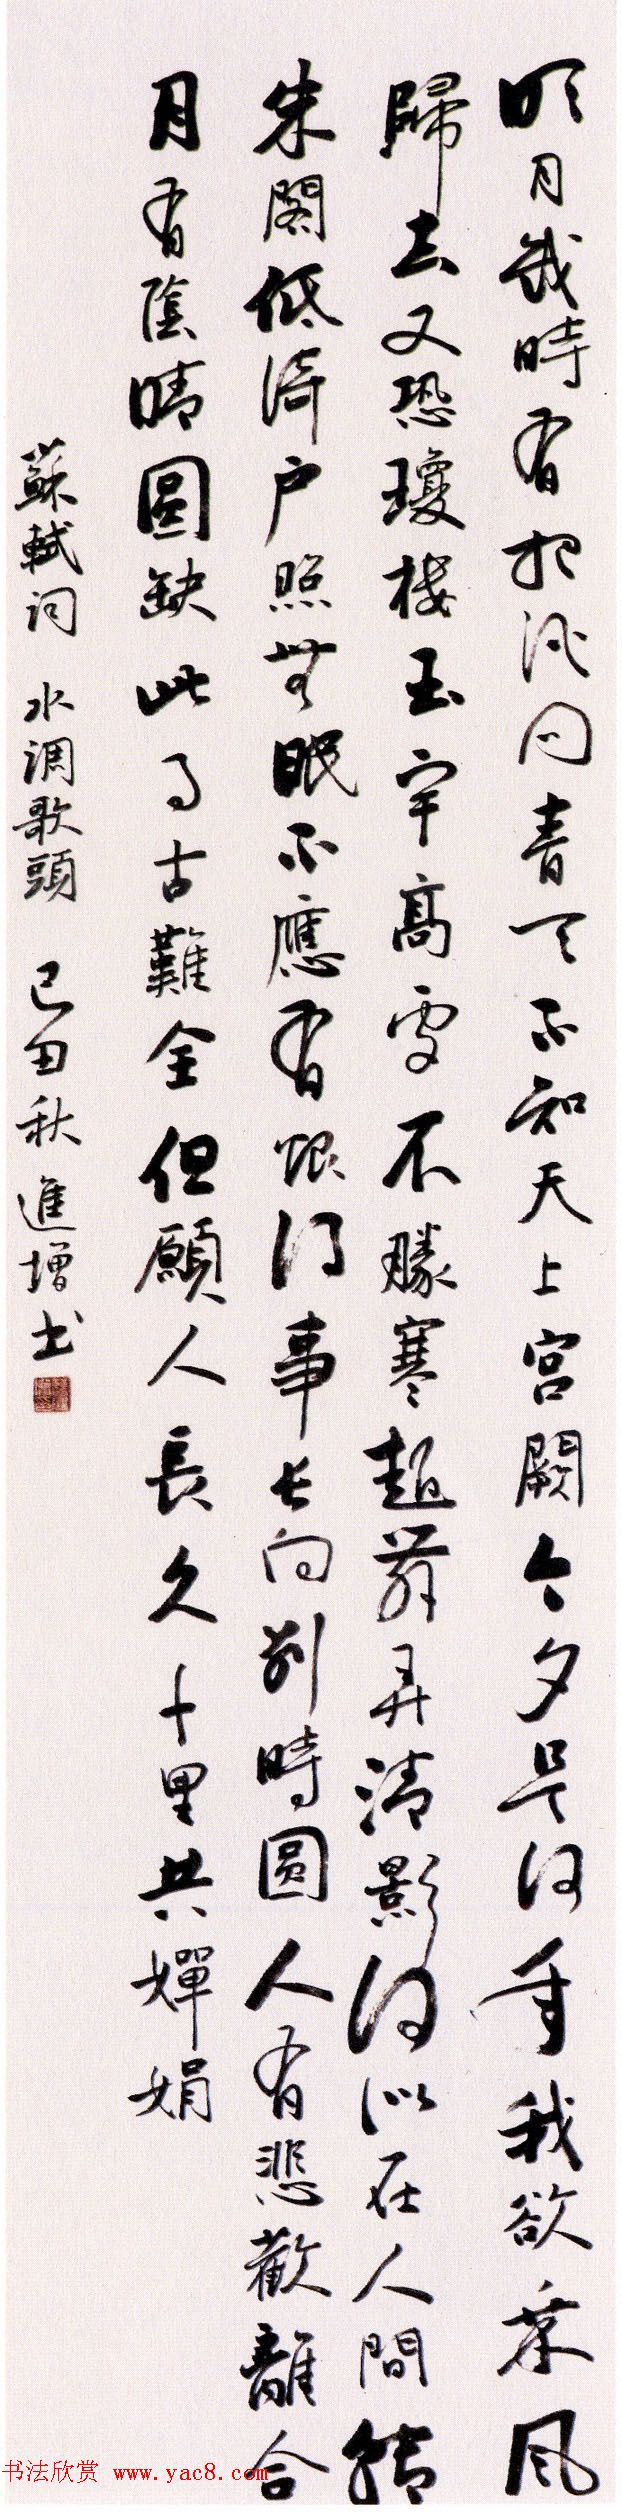 明月幾時有把酒問青天不知天上宮闕今夕是何年我欲乘風
歸去又恐瓊樓玉宇高處不勝寒起舞弄清影何似在人間轉
朱閣低綺户照無眠不應有恨何事長向别時圓人有悲歡離合
月有陰晴圓缺此事古難全但願人長久千里共嬋娟
蘇軾詞 水調歌頭 己丑秋 進增书
书法欣赏 www.yac8.com